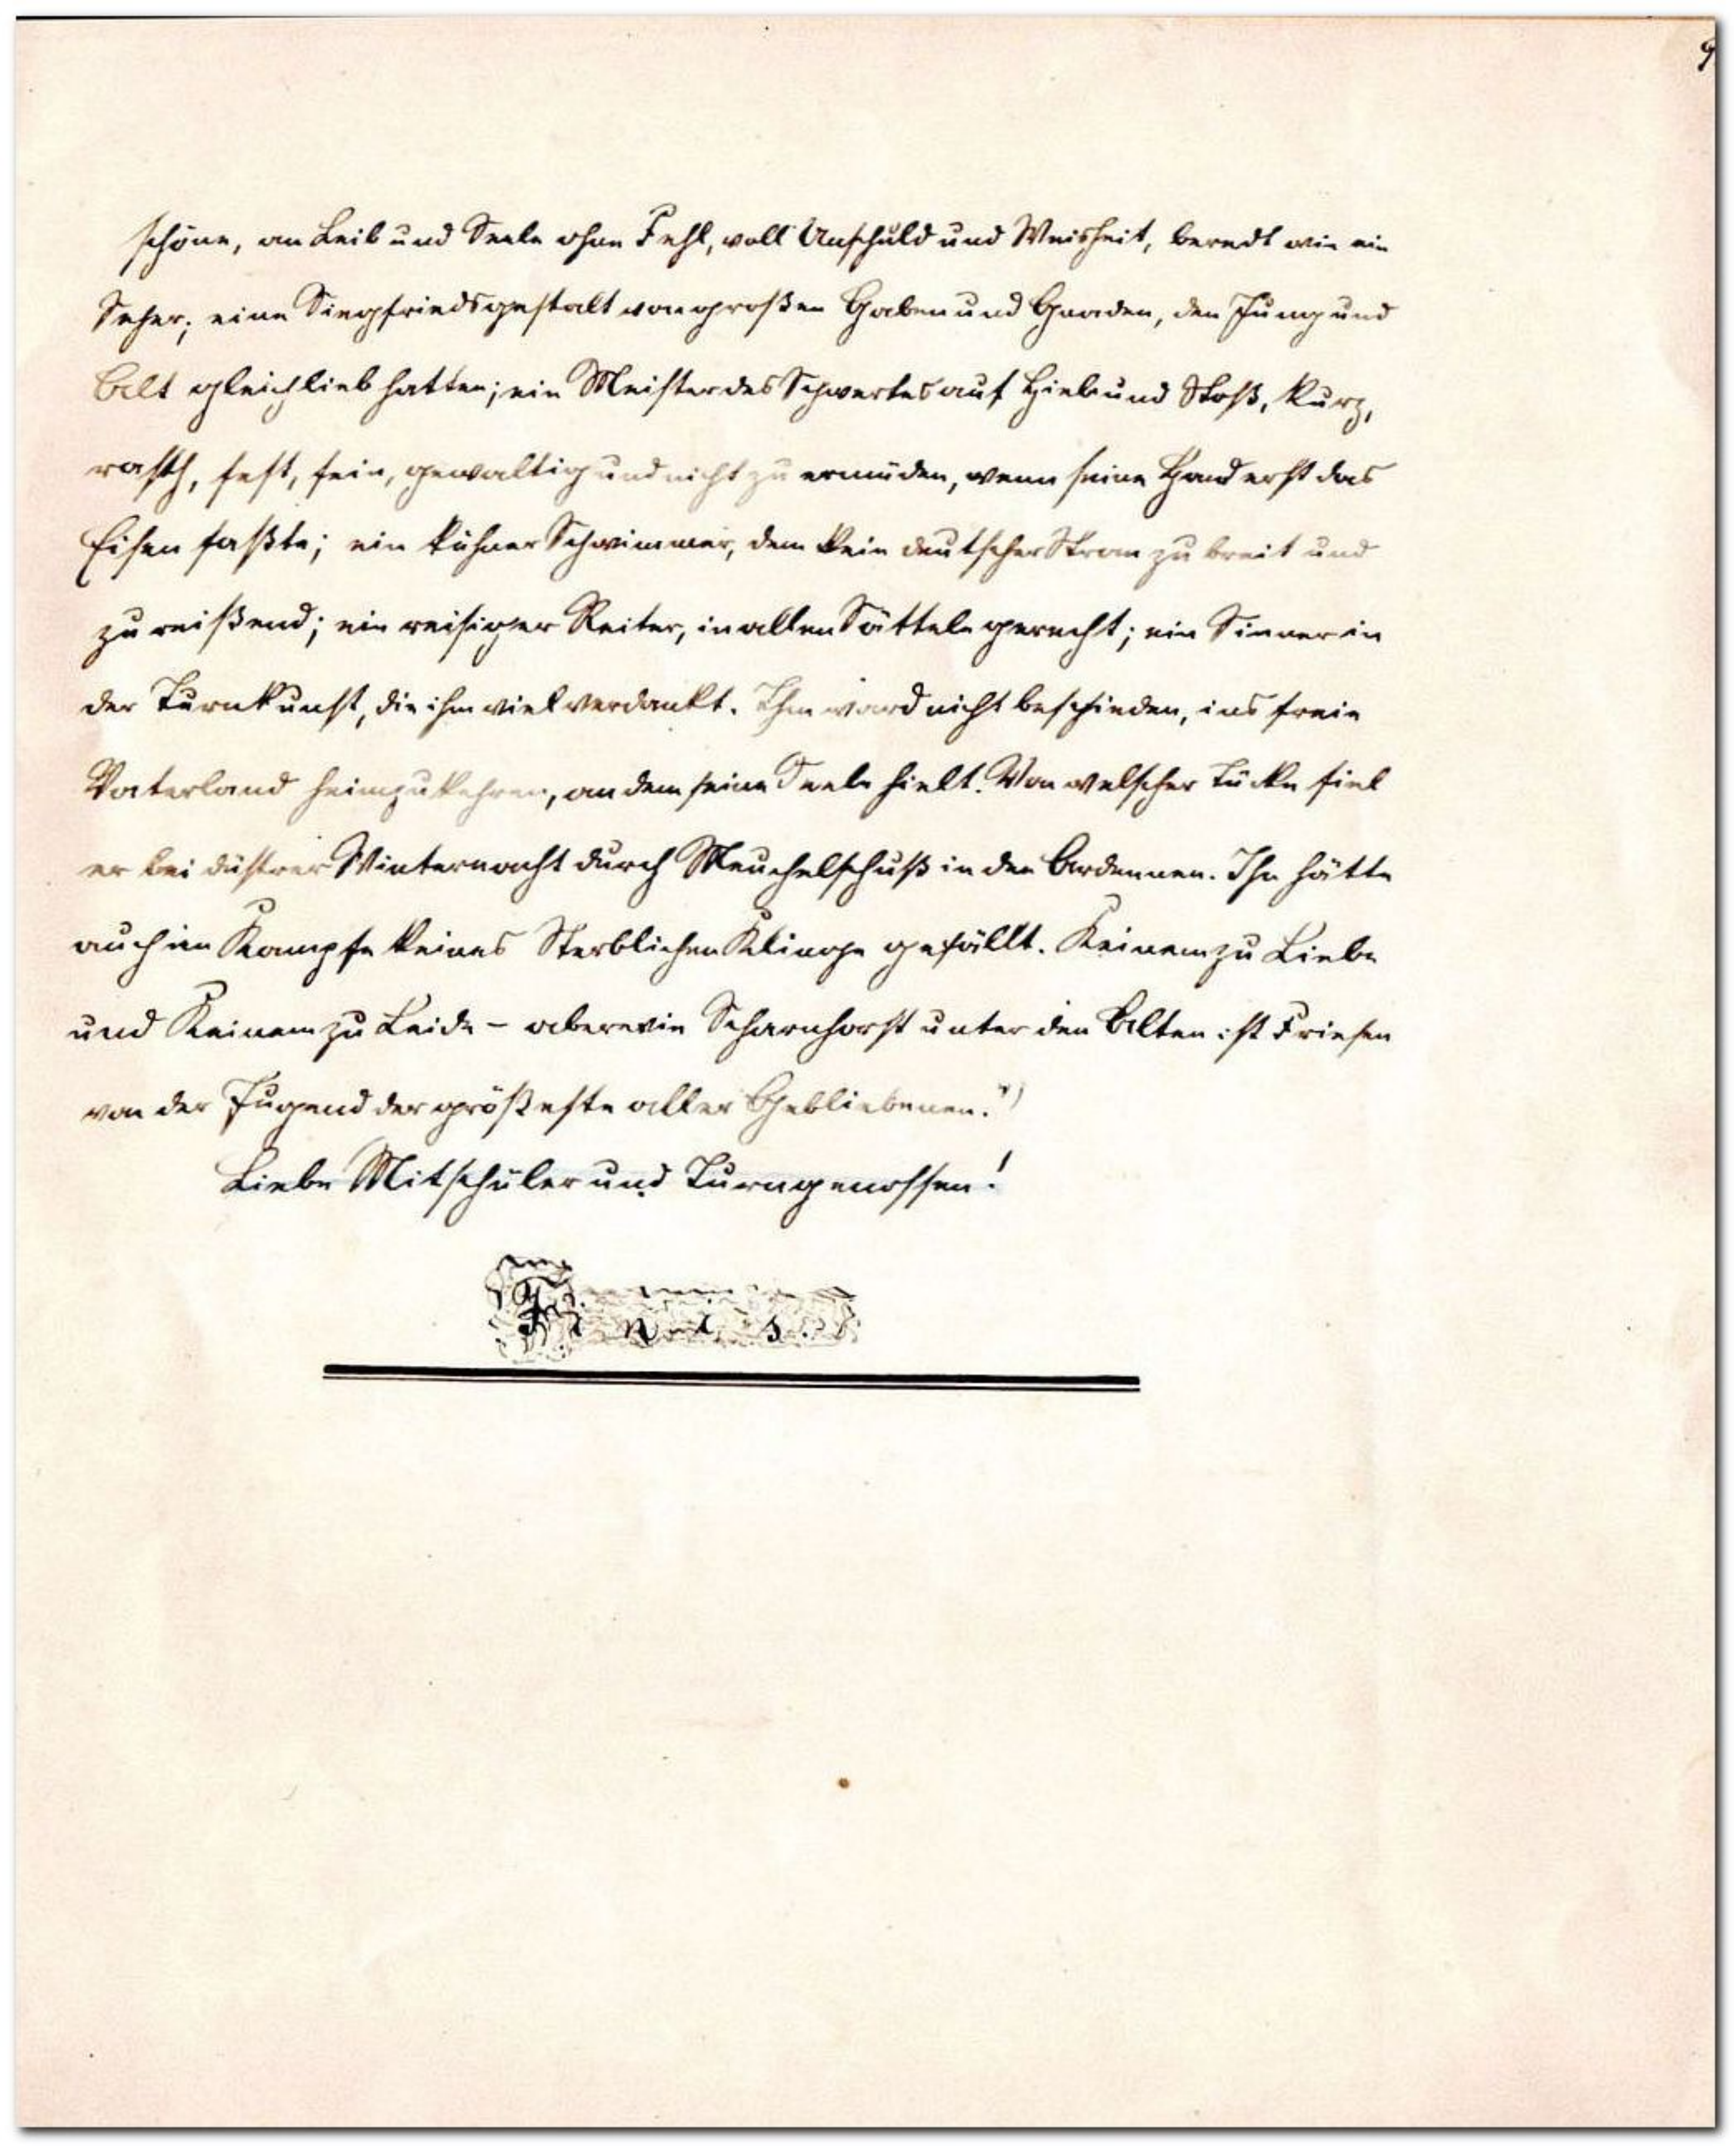 9
schöne, an Leib und Seele ohne Fehl, voll Unschuld und Weisheit, beredt wie ein
Seher; eine Siegfriedsgestalt von großen Gaben und Gnaden, den Jung und
Alt gleich lieb hatten; ein Meister des Schwertes auf Hieb und Stoß, kurz,
rasch, fest, fein, gewaltig und nicht zu ermüden, wenn seine Hand erst das
Eisen faßte; ein kühner Schwimmer, dem kein deutscher Strom zu breit und
zu reißend; ein reisiger Reiter, in allen Sätteln gerecht; ein Sinner in
der Turnkunst, die ihm viel verdankt. Ihm ward nicht beschieden, ins freie
Vaterland heimzukehren, an dem seine Seele hielt. Von welscher Tücke fiel
er bei düstrer Winternacht durch Meuchelschuß in den Ardennen. Ihn hätte
auch im Kampfe keines Sterblichen Klinge gefällt. Keinem zu Liebe
und Keinem zu Leide – aber wie Scharnhorst unter den Alten ist Friesen
von der Jugend der größeste aller Gebliebenen."
Liebe Mitschüler und Turngenossen!
Finis.